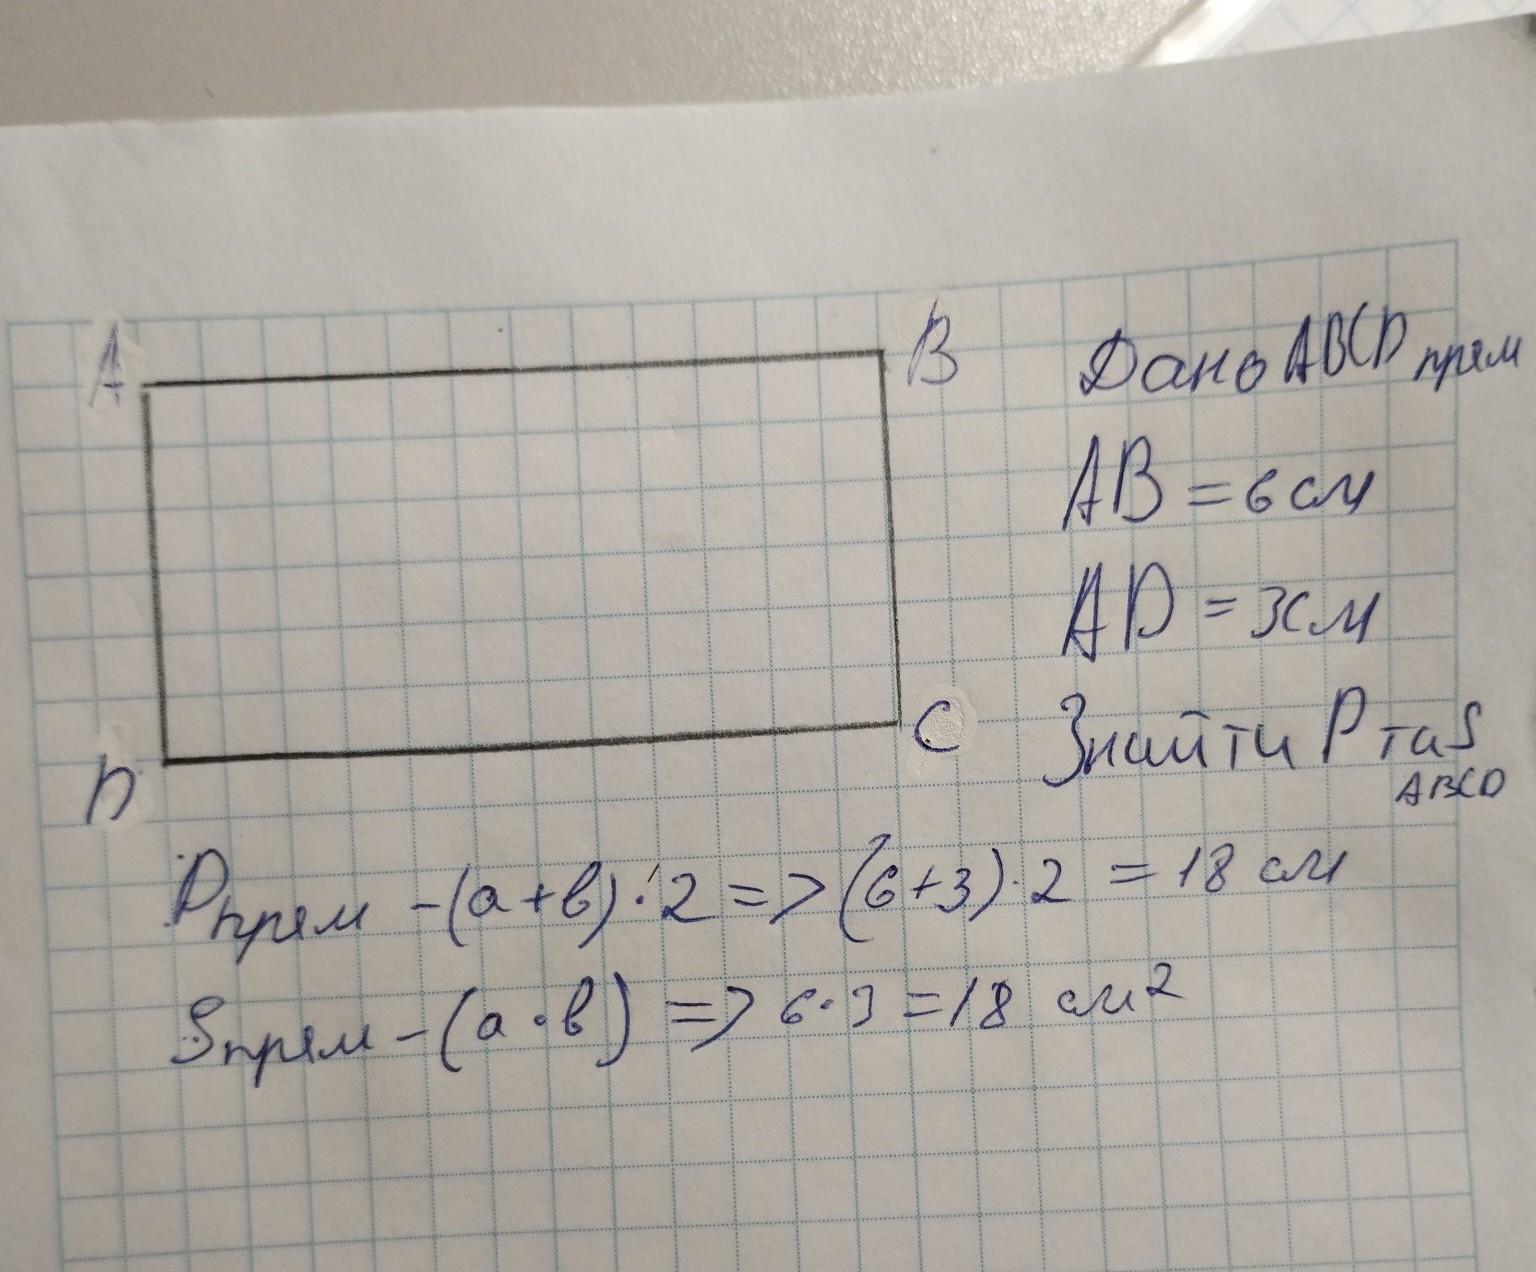 A
B
Дано ABCD прям
AB = 6 см
AD = 3 см
C
Знайти P та S
ABCD
D
Pпрям - (a + b) · 2 => (6 + 3) · 2 = 18 см
Sпрям - (a · b) => 6 · 3 = 18 см²